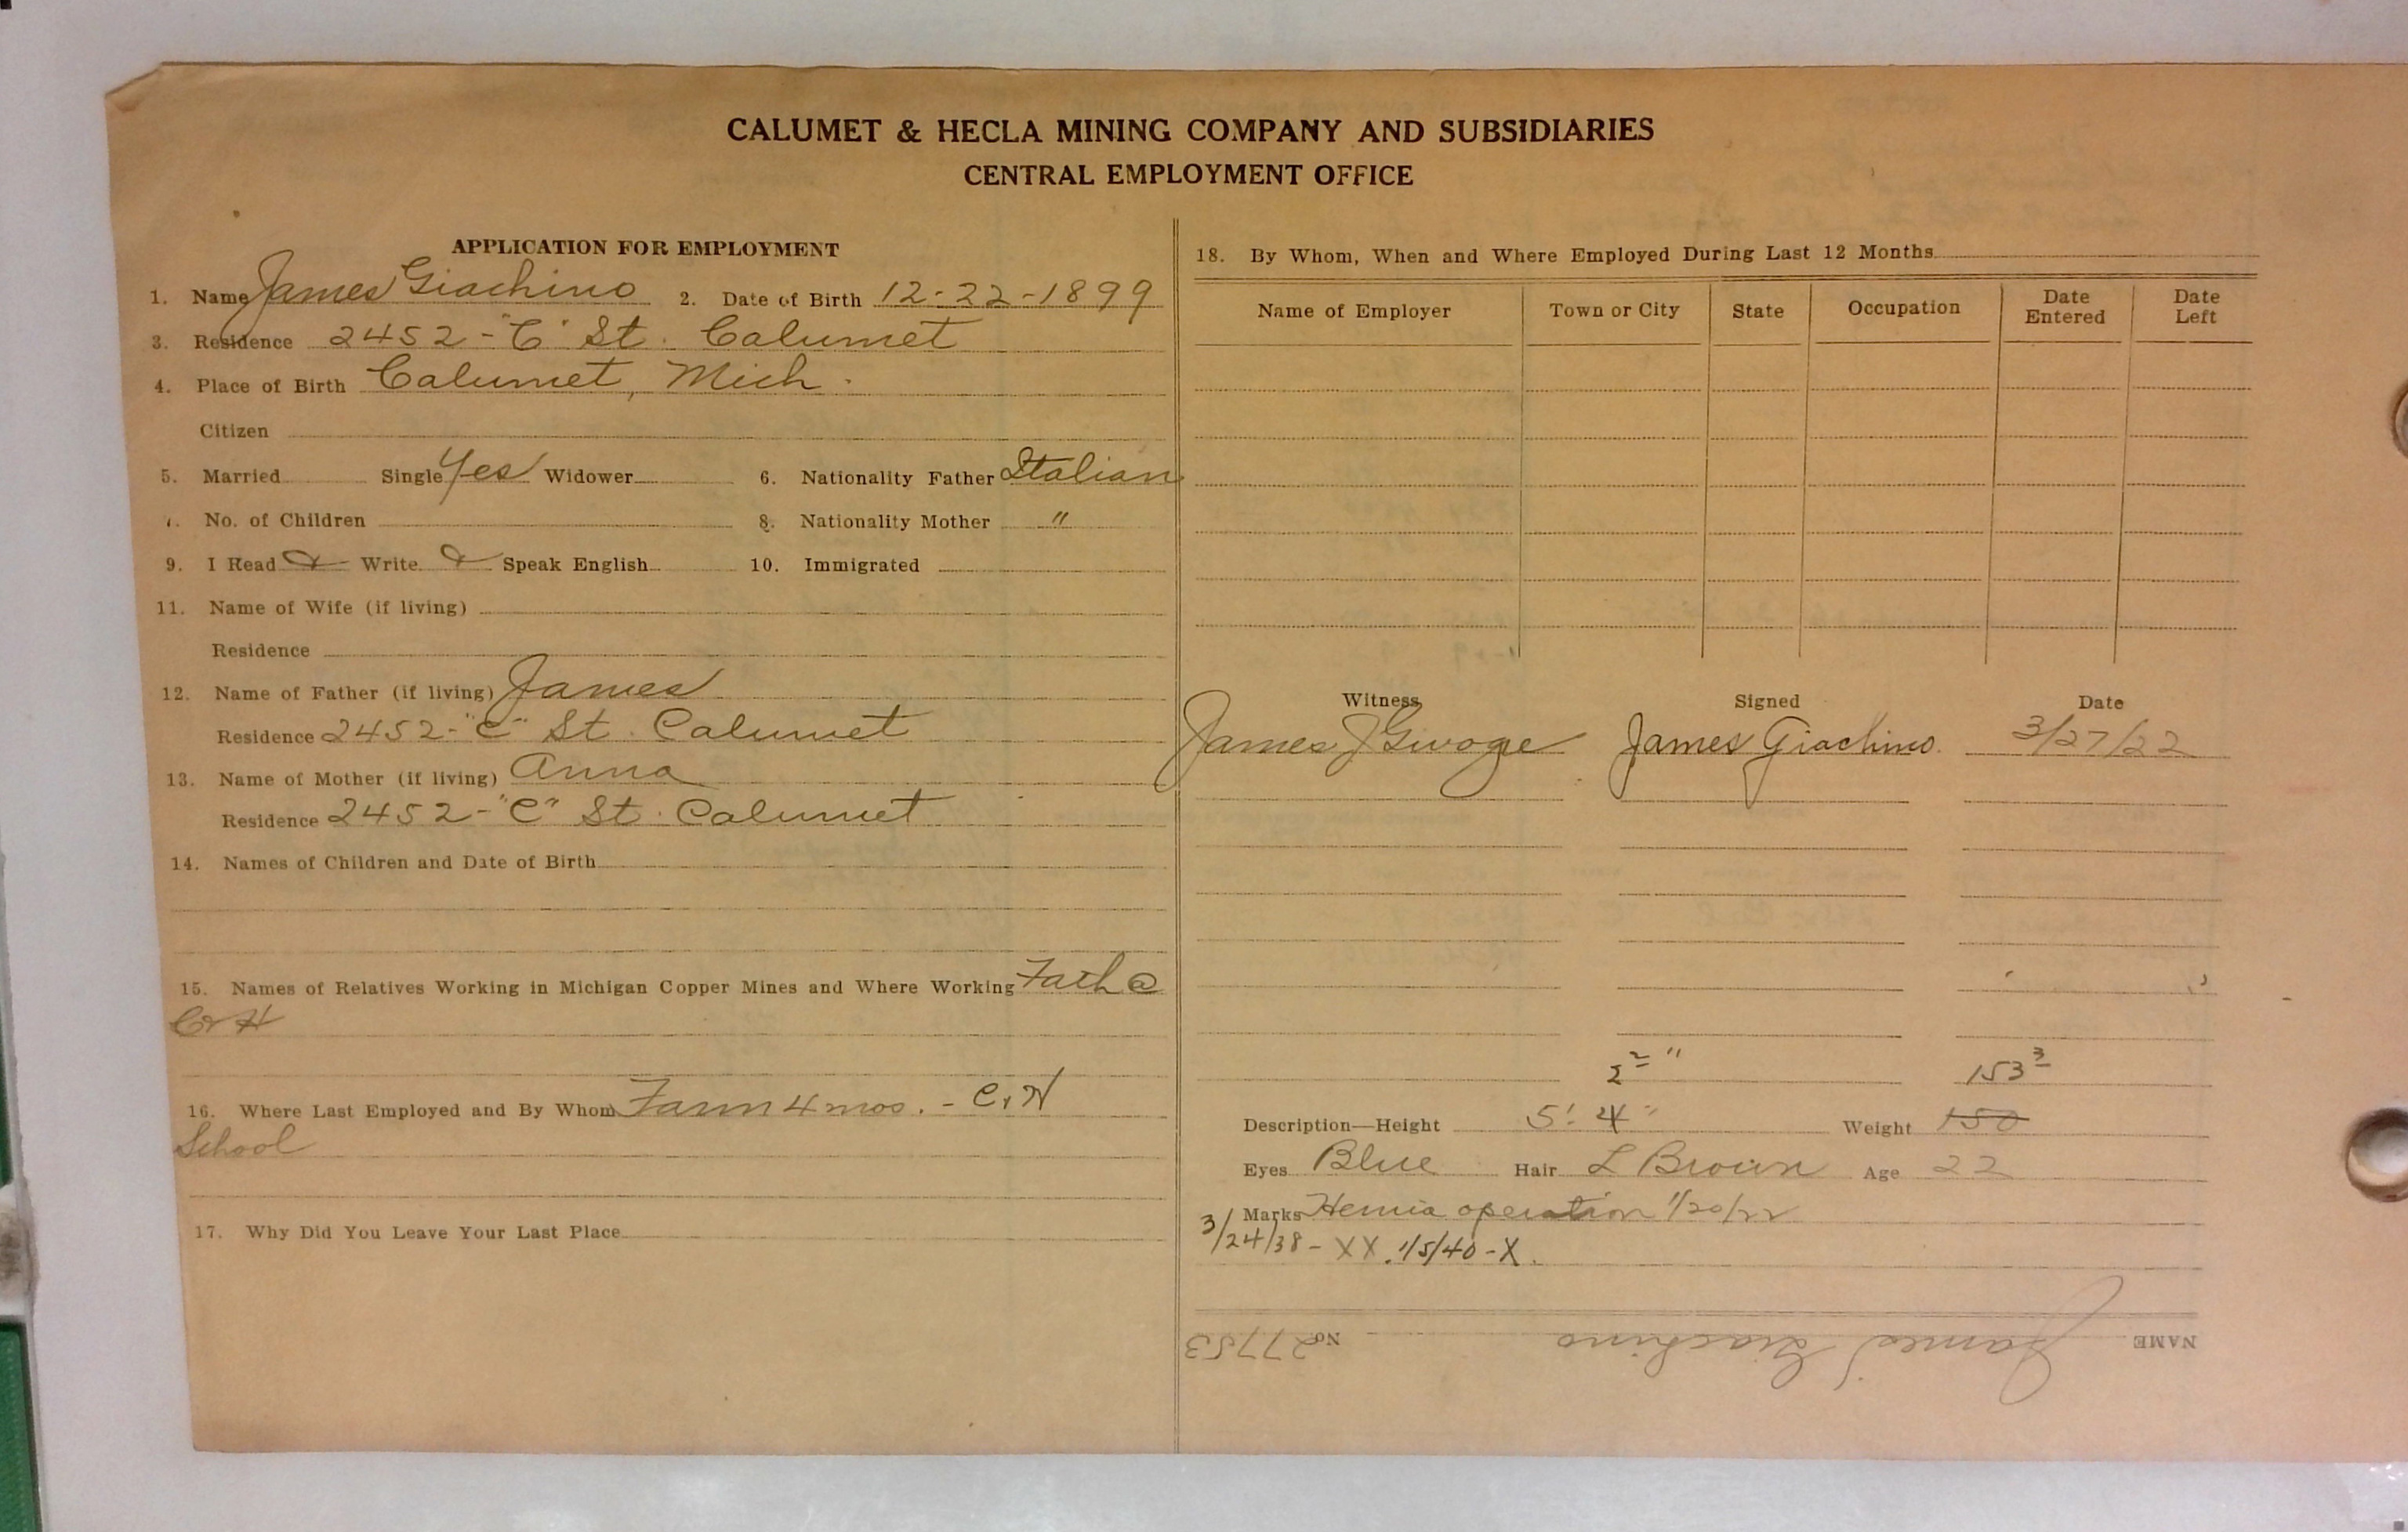 CALUMET & HECLA MINING COMPANY AND SUBSIDIARIES
CENTRAL EMPLOYMENT OFFICE
APPLICATION FOR EMPLOYMENT
1. Name James Giachino 2. Date of Birth 12-22-1899
3. Residence 2452-"C" St. Calumet
4. Place of Birth Calumet, Mich.
Citizen
5. Married Single Yes Widower 6. Nationality Father Italian
7. No. of Children 8. Nationality Mother "
9. I Read & Write & Speak English 10. Immigrated
11. Name of Wife (if living)
Residence
12. Name of Father (if living) James
Residence 2452-"C" St. Calumet
13. Name of Mother (if living) Anna
Residence 2452-"C" St. Calumet
14. Names of Children and Date of Birth
15. Names of Relatives Working in Michigan Copper Mines and Where Working Fath @
C & H
16. Where Last Employed and By Whom Farm 4 mos. - C & H
School
17. Why Did You Leave Your Last Place
18. By Whom, When and Where Employed During Last 12 Months
Name of Employer Town or City State Occupation Date Entered Date Left
Witness Signed Date
James J James Giachino. 3/27/22
2 " 153 3
Description—Height 5' 4" Weight 150
Eyes Blue Hair L Brown Age 22
Marks Hernia operation 1/20/22
3/24/38 - XX. 1/5/40 - X.
NAME James Giachino No 27753